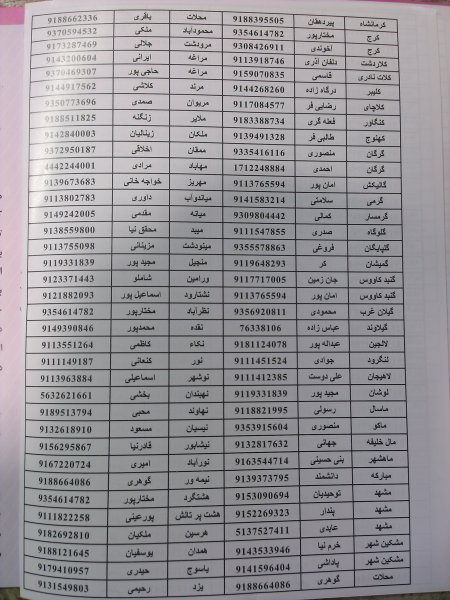 کرمانشاه پیردهقان 9188395505 محلات باقری 9188662336
کرج مختارپور 9354614782 محمودآباد ملکی 9370594532
کرج آخوندی 9308426911 مرودشت جلالی 9173287469
کلاردشت دلفان آذری 9113918746 مراغه ایرانی 9143200604
کلات نادری قاسمی 9159070835 مراغه حاجی پور 9370469307
کلیبر درگاه زاده 9144268260 مرند کلاشی 9144917562
کلاچای رضایی فر 9117084577 مریوان صمدی 9350773696
کنگاور فعله گری 9183388734 ملایر زنگنه 9188511825
کهنوج طالبی فر 9139491328 ملکان زینالیان 9142840003
گرگان منصوری 9335416116 ممقان اخلاقی 9372950187
گرگان احمدی 1712248884 مهاباد مرادی 4442244001
گالیکش امان پور 9113765594 مهریز خواجه خانی 9139673683
گرمی سلامتی 9141583214 میاندوآب داوری 9113802783
گرمسار کمالی 9309804442 میانه مقدمی 9149242005
گلوگاه صدری 9111547855 میبد محقق نیا 9138559800
گلپایگان فروغی 9355578863 مینودشت مزینانی 9113755098
گمیشان کر 9119648293 منجیل مجید پور 9119331839
گنبد کاووس جان زمین 9117717005 ورامین شاملو 9123371443
گنبد کاووس امان پور 9113765594 نشتارود اسماعیل پور 9121882093
گیلان غرب محمودی 9356920811 نظرآباد مختارپور 9354614782
گیلاوند عباس زاده 76338106 نقده محمدپور 9149390846
لالجین عبداله پور 9181124078 نکاء کاظمی 9113551264
لنگرود جوادی 9111451524 نور کنعانی 9111149187
لاهیجان علی دوست 9111412385 نوشهر اسماعیلی 9113963884
لوشان مجید پور 9119331839 نهبندان بخشی 5632621661
ماسال رسولی 9118821995 نهاوند محبی 9189513794
ماکو منصوری 9353915604 نیسیان مسعود 9132618910
مال خلیفه جهانی 9132817632 نیشابور قادرنیا 9156295867
ماهشهر بنی حسینی 9163544714 نورآباد امیری 9167220724
مبارکه دانشمند 9139373795 نیمه ور گوهری 9188664086
مشهد توحیدیان 9153090694 هشتگرد مختارپور 9354614782
مشهد پندار 9152269323 هشت پر تالش پورعینی 9111822258
مشهد عابدی 5137527411 هرسین ملکیان 9182692810
مشکین شهر خرم نیا 9143533946 همدان یوسفیان 9188121645
مشکین شهر پاداشی 9141596404 یاسوج حیدری 9179410957
محلات گوهری 9188664086 یزد رحیمی 9131549803